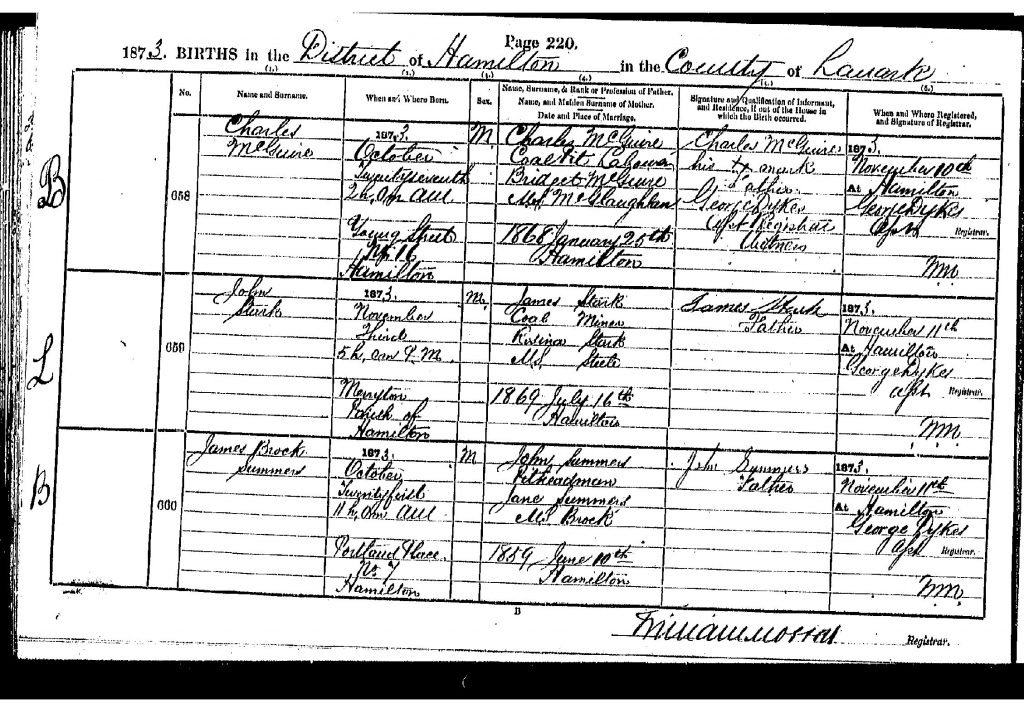 Page 220.
1873. BIRTHS in the District of Hamilton in the County of Lanark
(1.) (2.) (3.) (4.) (5.) (6.)
No.
Name and Surname.
When and Where Born.
Sex.
Name, Surname, & Rank or Profession of Father.
Name, and Maiden Surname of Mother.
Date and Place of Marriage.
Signature and Qualification of Informant,
and Residence, if out of the House in
which the Birth occurred.
When and Where Registered,
and Signature of Registrar.
B
658
Charles
McGuire
1873.
October
Twentyseventh
2h. 0m A.M.
Young Street
No. 16
Hamilton
M
Charles McGuire
Coal Pit Labourer
Bridget McGuire
M.S. McGlaughlan
1868 January 25th
Hamilton
Charles McGuire
his x mark
Father
George Dykes
Asst Registrar
Witness
1873.
November 10th
At Hamilton
George Dykes
Asst Registrar.
WM.
L
659
John
Stark
1873.
November
Third
5h. 0m P.M.
Merryton
Parish of
Hamilton
M.
James Stark
Coal Miner
Rosina Stark
M.S. Steele
1869 July 16th
Hamilton
James Stark
Father
1873.
November 11th
At Hamilton
George Dykes
Asst Registrar.
WM.
B
660
James Brock
Summers
1873.
October
Twentyfirst
11h. 0m A.M.
Portland Place
No. 7
Hamilton
M
John Summers
Pitheadman
Jane Summers
M.S. Brock
1859 June 10th
Hamilton
John Summers
Father
1873.
November 11th
At Hamilton
George Dykes
Asst Registrar.
WM.
B
Registrar.